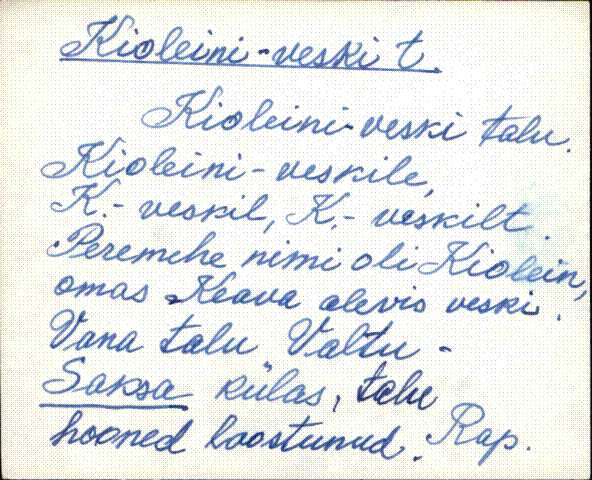 Kioleini-veski t.
Kioleini-veski talu.
Kioleini-veskile,
K.-veskil, K.-veskilt.
Peremehe nimi oli Kiolein,
omas Keava alevis veski.
Vana talu Valtu-
Saksa külas, talu
hooned loostunud. Rap.